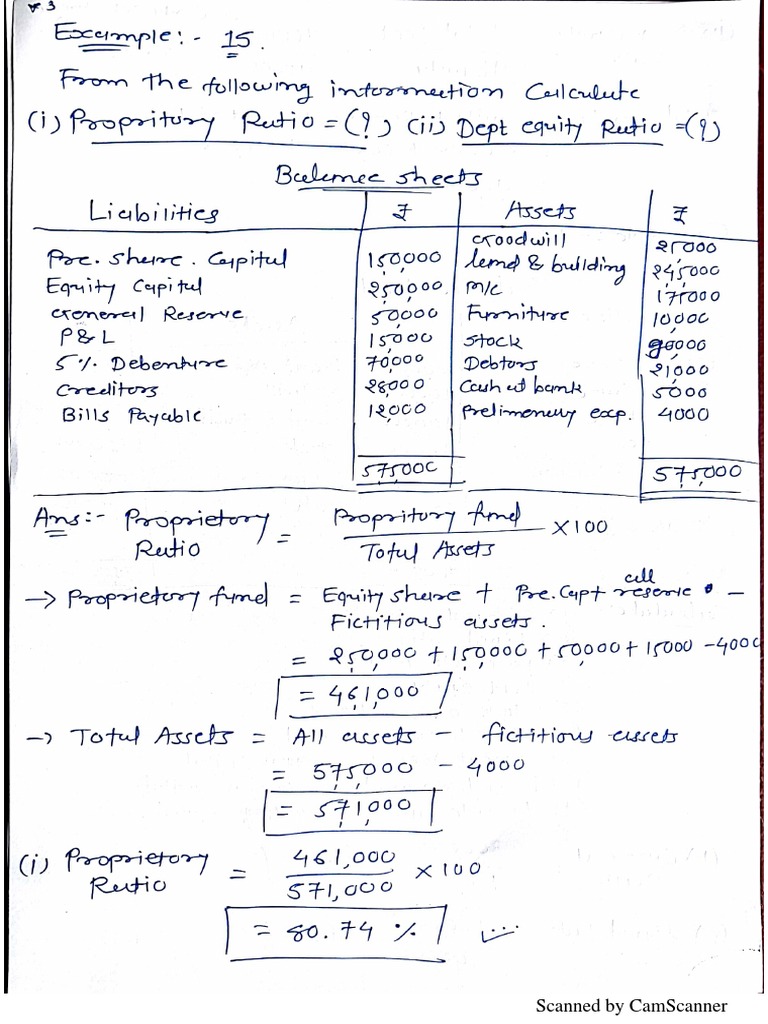 Example:- 15.
From the following information Calculate
(i) Propritory Ratio = (?) (ii) Dept equity Ratio = (?)
Balance sheets
Liabilities ₹ Assets ₹
Goodwill 25000
Pre. share. Capital 150,000 land & building 245,000
Equity Capital 250,000 M/c 175000
General Reserve 50,000 Furniture 10,000
P&L 15000 Stock 90000
5% Debenture 70,000 Debtors 21000
Creditors 28,000 Cash at bank 5000
Bills Payable 12,000 Prelimonary exp. 4000
575000 575,000
Ans:- Proprietory Ratio = Propritory fund / Total Assets X100
→ Proprietory fund = Equity share + Pre. Cap + all reserve -
Fictitious assets.
= 250,000 + 150,000 + 50,000 + 15000 - 4000
= 461,000
→ Total Assets = All assets - fictitious assets
= 575000 - 4000
= 571,000
(i) Proprietory Ratio = 461,000 / 571,000 X 100
= 80.74 %
Scanned by CamScanner